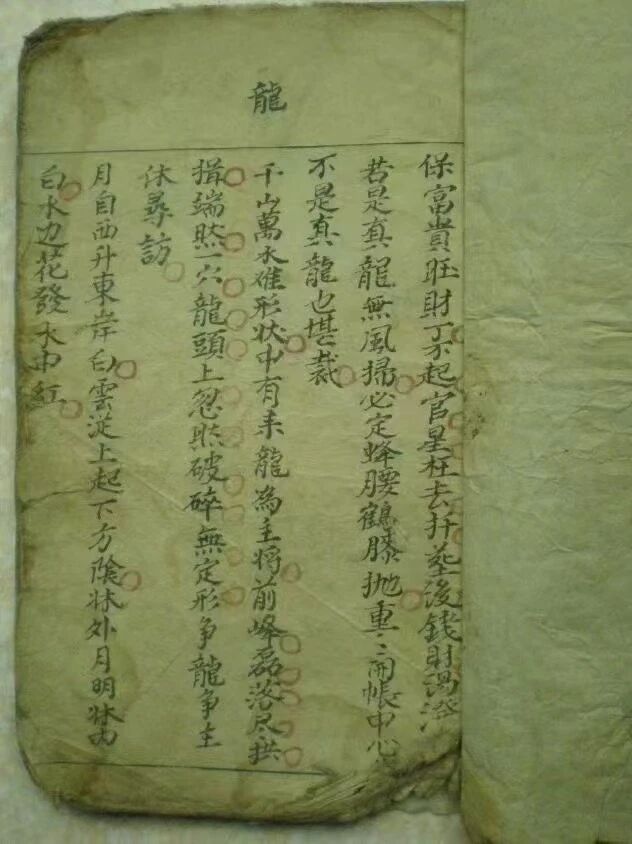 龍
保富貴旺財丁不起官星枉去扦塟後錢財湯潑
若是真龍無風掃必定蜂腰鶴膝抛重〻開帳中心
不是真龍也堪裁
千山萬水雖形状中有来龍為主将前峰磊落尽拱
揖端然一穴龍頭上忽然破碎無定形争龍争主
休尋訪
月自西升東岸白雲從上起下方陰牀外月明牀内
白水边花發水中紅